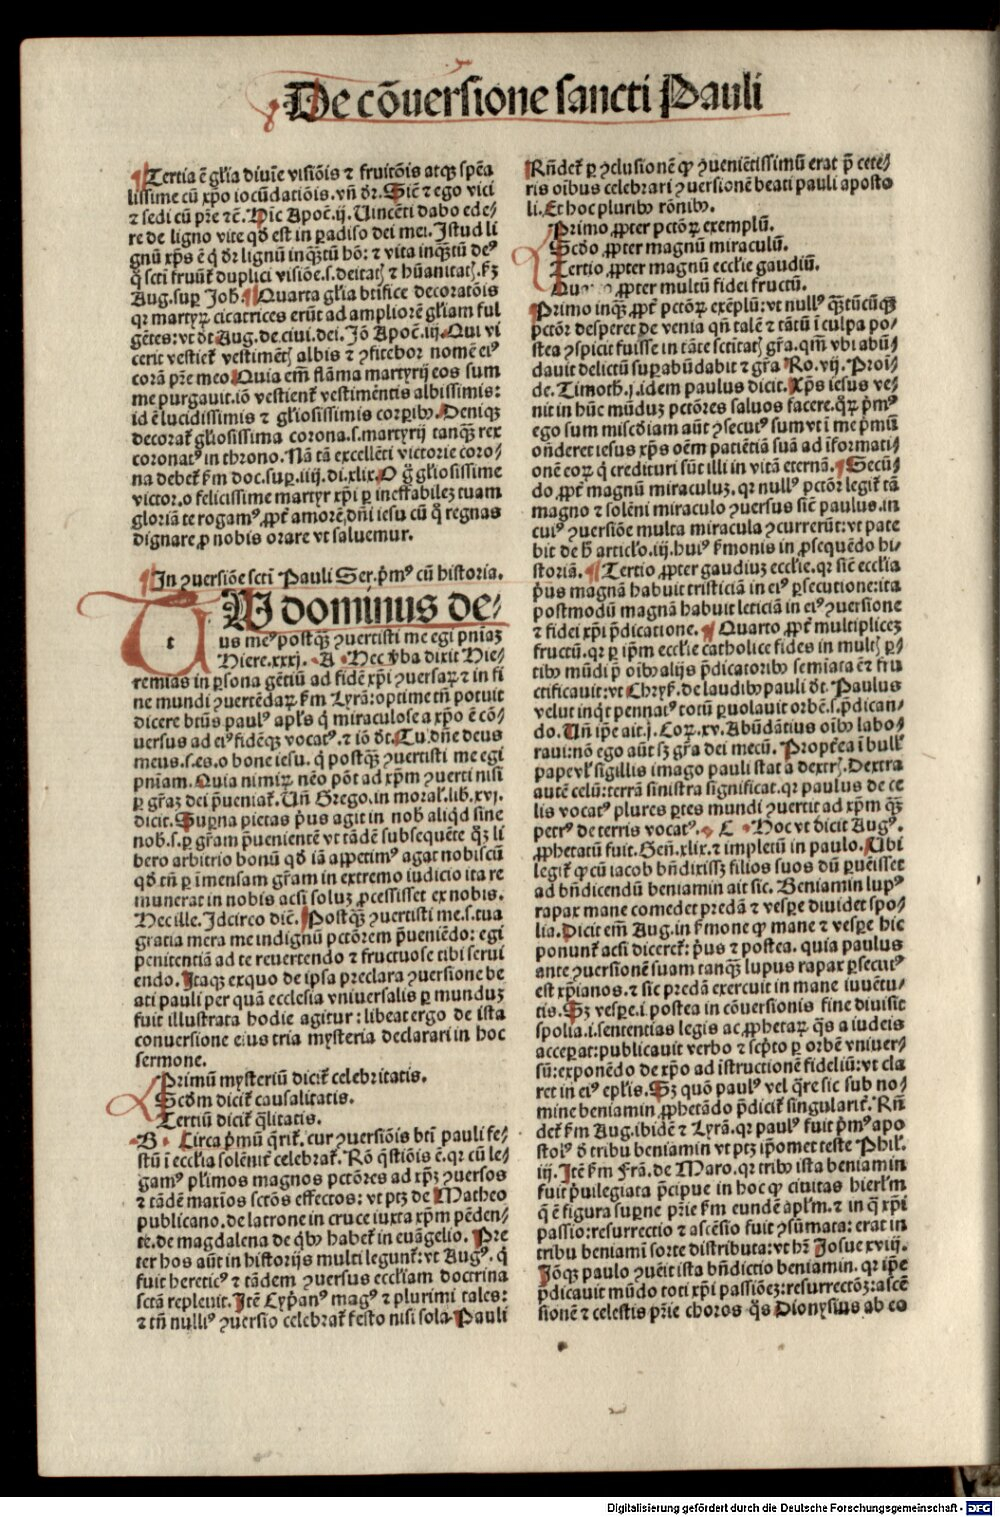 De cōuersione sancti Pauli
Tertia ē gl'ia diuie visiōis ⁊ fruitōis atqꝫ spēa
lissime cū xp̄o iocūdatiōis. vn̄ dr̄. Siē ⁊ ego vici
⁊ sedi cū pr̄e ⁊ē. Hic Apoc̄. ij. Uincēti dabo ede-
re de ligno vite qd̄ est in ꝑadiso dei mei. Istud li
gnū xp̄s ē q̄ dr̄ lignū inqꝫtū hō: ⁊ vita inqꝫtū deꝰ
q̄ scti fruūt̄ duplici visiōe. s. deitatꝭ ⁊ hūanitatꝭ. fꝫ
Aug. suꝑ Joh. Quarta gl'ia btīfice decoratōis
qꝛ martyꝝ cicatrices erūt ad ampliorē gl'iam ful
gētes: vt dt̄ Aug. de ciui. dei. Jō Apoc̄. iij. Qui vi
cerit vestiet̄ vestimētꝭ albis ⁊ ꝯfitebor nomē eiꝰ
corā pr̄e meo. Quia em̄ flāma martyrij eos sum
me purgauit. iō vestient̄ vestimentis albissimis:
id ē lucidissimis ⁊ gl'iosissimis corꝑibꝰ. Deniqꝫ
decorat̄ gl'iosissima corona. s. martyrij tanqꝫ rex
coronatꝰ in throno. Nā tā excellēti victorie coro-
na debet̄ fm̄ doc. suꝑ. iiij. di. xlix. O ḡ gl'iosissime
victor. o felicissime martyr xp̄i ꝑ ineffabilez tuam
gloriā te rogamꝰ ꝓpt̄ amorē dn̄i iesu cū q̄ regnas
dignare ꝓ nobis orare vt saluemur.
In ꝯuersiōe scti Pauli Ser. p̄mꝰ cū historia.
T
t
U dominus de-
us meꝰ postqꝫ ꝯuertisti me egi pn̄iaꝫ
Hiere. xxxj. A Hec v̄ba dixit Hie-
remias in ꝑsona gētiū ad fidē xp̄i ꝯuersaꝝ ⁊ in fi
ne mundi ꝯuertēdaꝝ fm̄ Lyrā: optime tn̄ potuit
dicere btūs paulꝰ apl's q̄ miraculose a xp̄o ē cō-
uersus ad eiꝰ fidēqꝫ vocatꝰ. ⁊ iō dt̄. Tu dn̄e deus
meus. s. es. o bone iesu. q̄ postqꝫ ꝯuertisti me egi
pn̄iam. Quia nimiꝝ nēo pōt ad xp̄m ꝯuerti nisi
ꝑ gr̄aꝫ dei p̄ueniat̄. Un̄ Grego. in moral'. lib. xvj.
dicit. Suꝑna pietas p̄us agit in nob̄ aliqd sine
nob̄. s. ꝑ gr̄am p̄uenientē vt tādē subsequēte q̄ꝫ li
bero arbitrio bonū qd̄ iā appetimꝰ agat nobiscū
qd̄ tn̄ ꝑ īmensam gr̄am in extremo iudicio ita re
munerat in nobis acsi soluꝫ ꝓcessisset ex nobis.
Hec ille. Idcirco diē. Postqꝫ ꝯuertisti me. s. tua
gratia mera me indignū pctōrem p̄ueniēdo: egi
penitentiā ad te reuertendo ⁊ fructuose tibi serui
endo. Itaqꝫ exquo de ipsa preclara ꝯuersione be
ati pauli per quā ecclesia vniuersalis ꝑ munduꝫ
fuit illustrata hodie agitur: libeat ergo de ista
conuersione eius tria mysteria declarari in hoc
sermone.
Primū mysteriū dicit̄ celebritatis.
Scd̄m dicit̄ causalitatis.
Tertiū dicit̄ q̄litatis.
B Circa p̄mū q̄rit̄. cur ꝯuersiōis btī pauli fe-
stū ī eccl'ia solēnit̄ celebrat̄. Rō q̄stiōis ē. qꝛ cū le-
gamꝰ pl'imos magnos pctōres ad xp̄ꝫ ꝯuersos
⁊ tādē maxīos sctōs effectos: vt ptꝫ de Matheo
publicano. de latrone in cruce iuxta xp̄m pēden-
te. de magdalena de qbꝰ habet̄ in euāgelio. Pre
ter hos aūt in historijs multi legunt̄: vt Augꝰ. q̄
fuit hereticꝰ ⁊ tādem ꝯuersus eccl'iam doctrina
sctā repleuit. Itē Cyp̄anꝰ magꝰ ⁊ plurimi tales:
⁊ tn̄ nulliꝰ ꝯuersio celebrat̄ festo nisi sola Pauli
Rn̄det̄ ꝑ ꝯclusionē ꝙ ꝯuenientissimū erat p̄ cete-
ris oībus celebrari ꝯuersionē beati pauli aposto
li. Et hoc pluribꝰ rōnibꝰ.
Primo ꝓpter pctōꝝ exemplū.
Scd̄o ꝓpter magnū miraculū.
Tertio ꝓpter magnū eccl'ie gaudiū.
ꝓpter multū fidei fructū.
Primo inqꝫ ꝓpt̄ pctōꝝ exēplū: vt nullꝰ qꝫtūcūqꝫ
pctōr desperet de venia qn̄ talē ⁊ tātū ī culpa po-
stea ꝯspicit fuisse in tāte sctītatꝭ gr̄a. qm̄ vbi abū-
dauit delictū suꝑabūdabit ⁊ gr̄a Ro. vij. Proī-
de. Timoth. j. idem paulus dicit. Xp̄s iesus ve-
nit in hūc mūduꝫ pctōres saluos facere. qꝝ p̄mꝰ
ego sum miscd̄iam aūt ꝯsecutꝰ sum vt ī me p̄mū
on̄deret iesus xp̄s oēm patiētiā suā ad īformati-
onē eoꝝ q̄ credituri sūt illi in vitā eternā. Secū-
do ꝓpt̄ magnū miraculuꝫ. qꝛ nullꝰ pctōr legit̄ tā
magno ⁊ solēni miraculo ꝯuersus siē paulus. in
cuiꝰ ꝯuersiōe multa miracula ꝯcurrerūt: vt pate
bit de h̄ articl'o. iij. huiꝰ f̄monis in ꝓsequēdo hi-
storiā. Tertio ꝓpter gaudiuꝫ eccl'ie. qꝛ siē eccl'ia
p̄us magnā habuit tristiciā in eiꝰ ꝑsecutione: ita
postmodū magnā habuit leticiā in eiꝰ ꝯuersione
⁊ fidei xp̄i p̄dicatione. Quarto ꝓpt̄ multiplicez
fructū. qꝛ ꝑ ip̄m eccl'ie catholice fides in multꝭ ꝑ-
tibꝰ mūdi p̄ oībꝰ alijs p̄dicatoribꝰ semiata ē ⁊ fru
ctificauit: vt Chryf̄. de laudibꝰ pauli dt̄. Paulus
velut inqt pennatꝰ totū ꝑuolauit orbē. s. p̄dican-
do. Un̄ ip̄e ait. j. Coꝝ. xv. Abūdātius oībꝰ labo-
raui: nō ego aūt sꝫ gr̄a dei mecū. Propt̄ea ī bull'
papevl' sigillis imago pauli stat a dextrꝭ. Dextra
autē celū: terrā sinistra significat. qꝛ paulus de ce
lis vocatꝰ plures ꝑtes mundi ꝯuertit ad xp̄m qꝫ
petrꝰ de terris vocatꝰ. C Hoc vt dicit Augꝰ.
ꝓphetatū fuit. Gen̄. xlix. ⁊ impletū in paulo. Ubi
legit̄ ꝙ cū iacob bn̄dixissꝫ filios suos dū ꝑuēisset
ad bn̄dicendū beniamin ait sic. Beniamin lupꝰ
rapax mane comedet predā ⁊ vesꝑe diuidet spo-
lia. Dicit em̄ Aug. in f̄mone ꝙ mane ⁊ vesꝑe hic
ponunt̄ acsi diceret̄: p̄us ⁊ postea. quia paulus
ante ꝯuersionē suam tanqꝫ lupus rapax ꝑsecutꝰ
est xp̄ianos. ⁊ sic predā exercuit in mane iuuētu-
tis. Sꝫ vesꝑe. i. postea in cōuersionis fine diuisit
spolia. i. sententias legis ac ꝓphetaꝝ q̄s a iudeis
acceꝑat: publicauit verbo ⁊ scp̄to ꝑ orbē vniuer-
sū: exponēdo de xp̄o ad istructionē fideliū: vt cla
ret in eiꝰ epl'is. Sꝫ quō paulꝰ vel q̄re sic sub no-
mine beniamin ꝓphetādo p̄dicit̄ singularit̄. Rn̄
det̄ fm̄ Aug. ibidē ⁊ Lyrā. qꝛ paulꝰ fuit p̄mꝰ apo
stolꝰ d̄ tribu beniamin vt ptꝫ ip̄omet teste Phil'.
iij. Itē fm̄ Frā. de Maro. qꝛ tribꝰ ista beniamin
fuit p̄uilegiata p̄cipue in hoc ꝙ ciuitas hierl'm
q̄ ē figura suꝑne pr̄ie fm̄ eundē apl'm. ⁊ in q̄ xp̄i
passio: resurrectio ⁊ ascēsio fuit ꝯsūmata: erat in
tribu beniamī sorte distributa: vt hr̄ Josue xviij.
Jōqꝫ paulo ꝯuēit ista bn̄dictio beniamin. qꝛ ip̄e
p̄dicauit mūdo toti xp̄i passiōeꝫ: resurrectōꝫ: ascē
sionē ⁊ celestis pr̄ie choros q̄s Dionysius ab eo
Digitalisierung gefördert durch die Deutsche Forschungsgemeinschaft - DFG